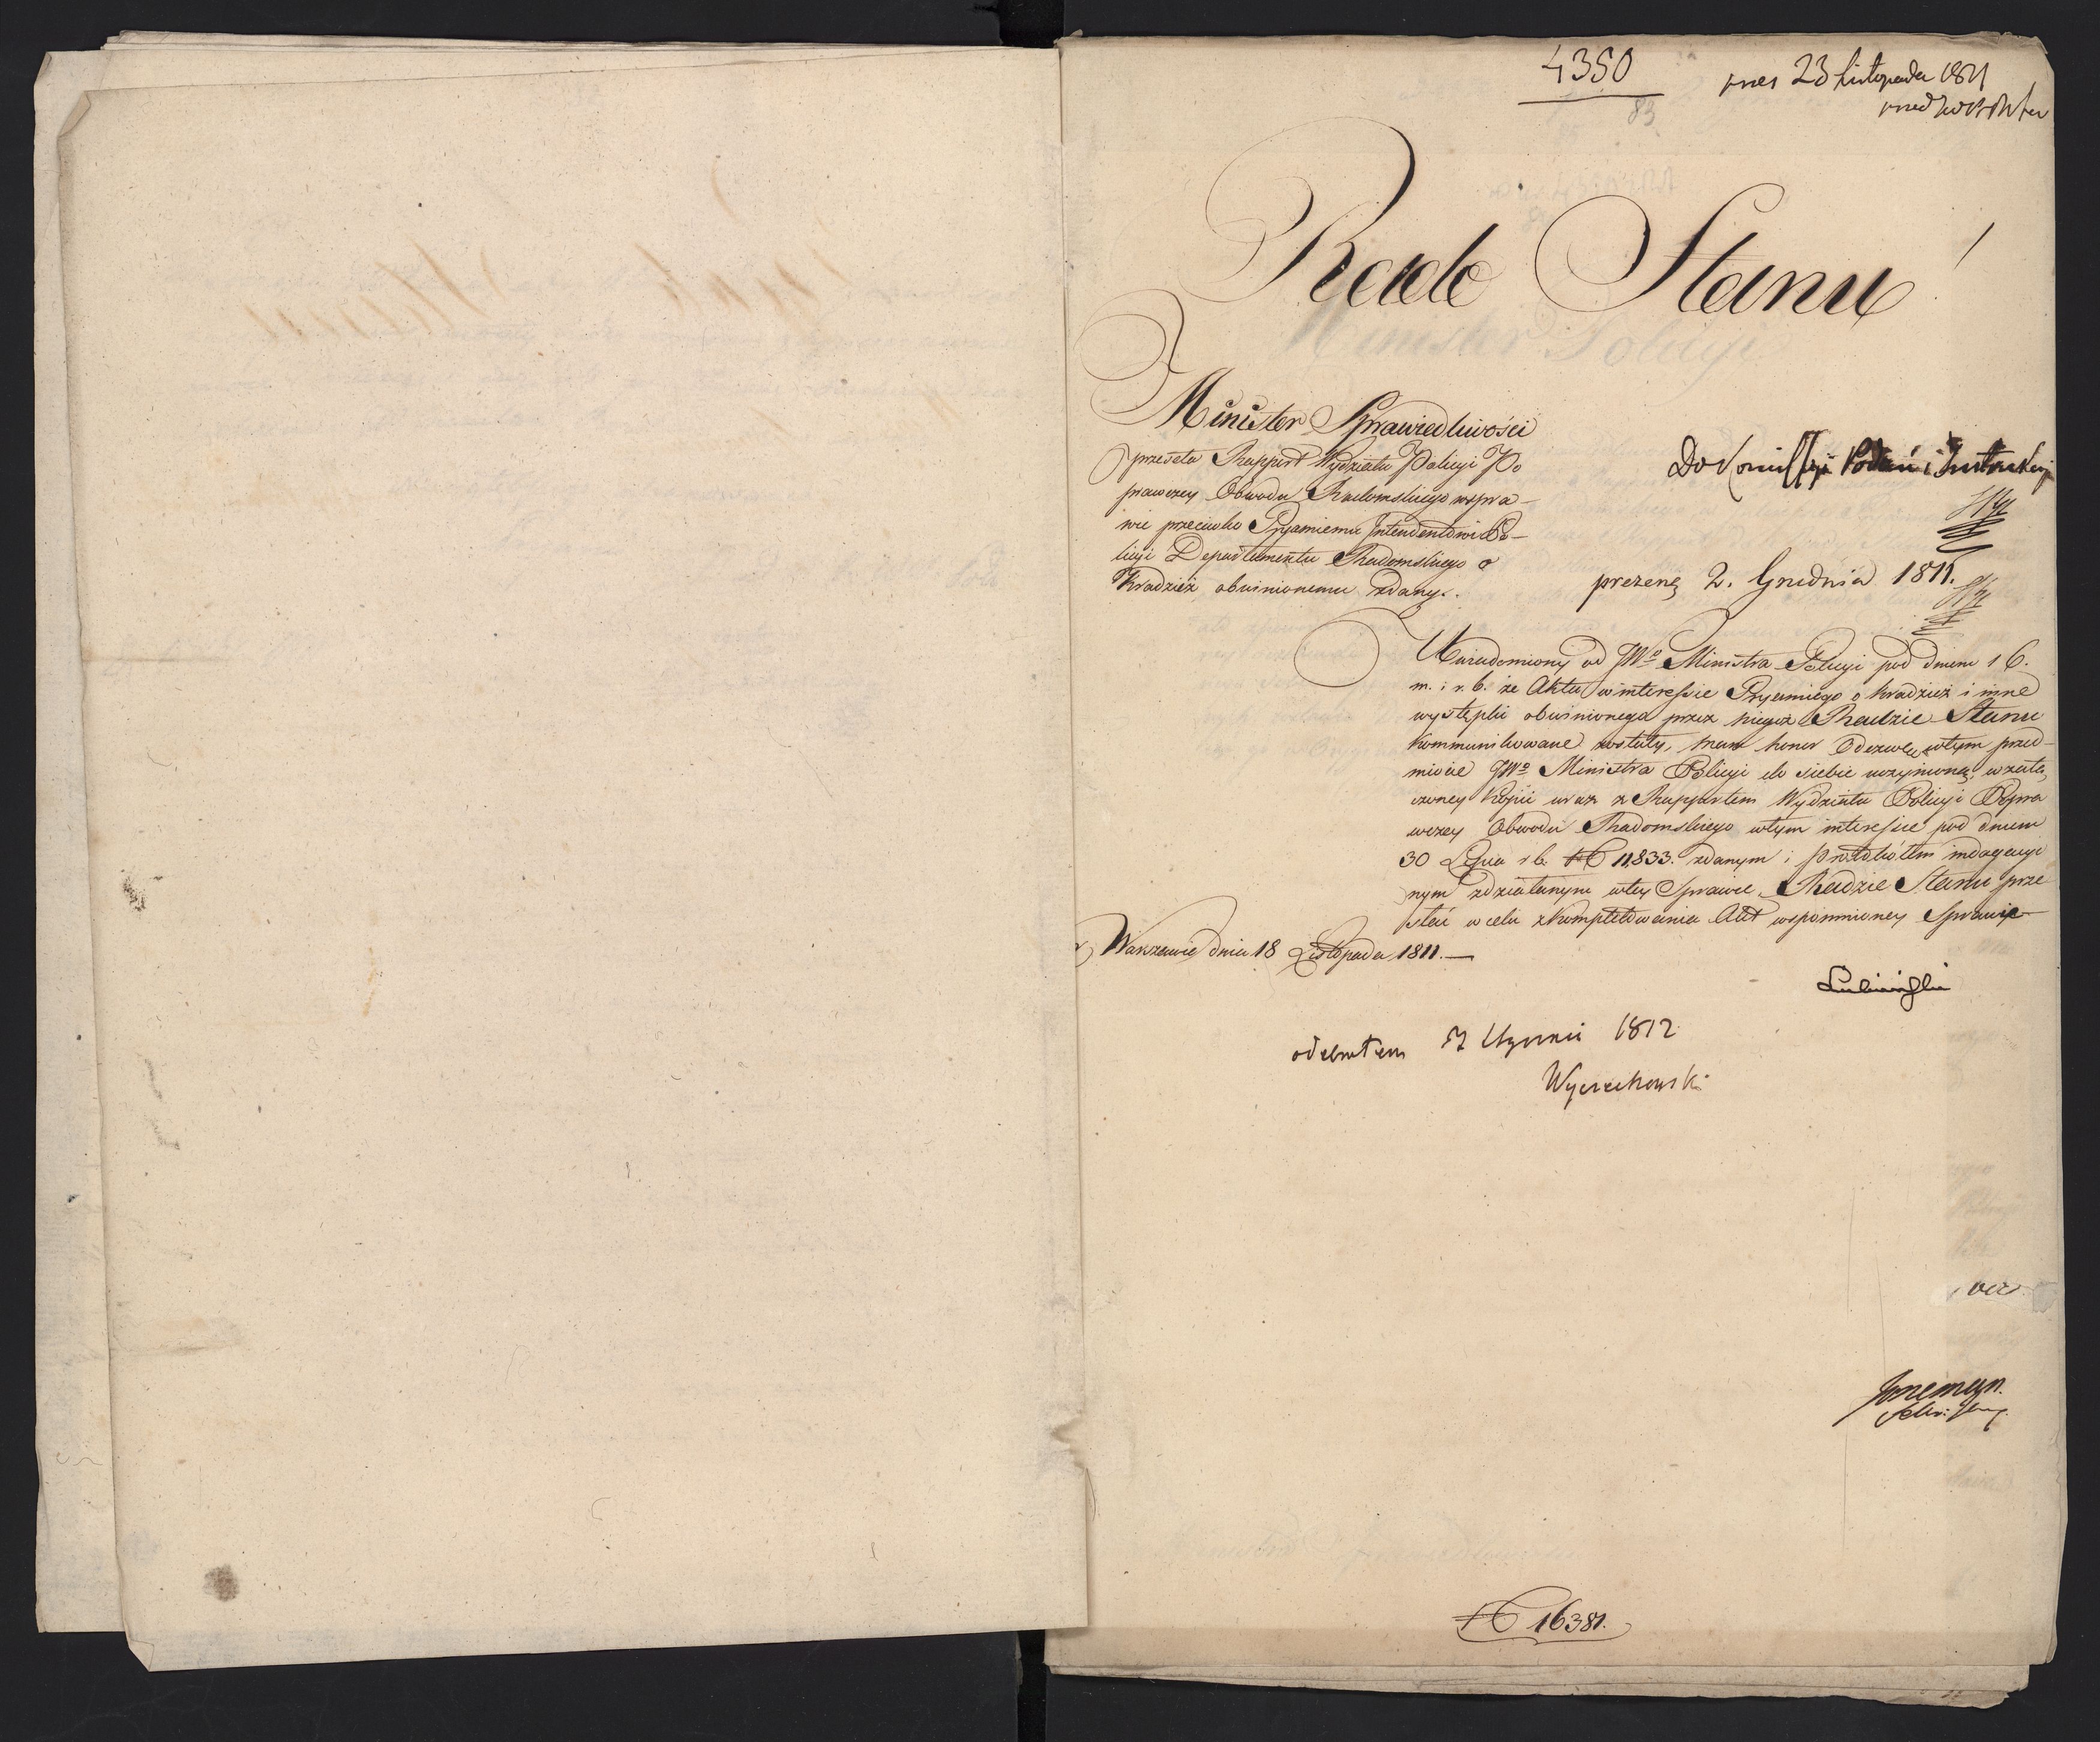 4350
23 Listopada 1811
83
Rada Stanu
Minister Sprawiedliwości
przeseła Rapport Wydziału Policyi Po
prawczey Obwodu Radomskiego wspra-
wie przeciwko Pryamiemu Intendentowi Po-
licyi Departamentu Radomskiego o
Kradzież obwinionemu zdany.
Do Kommissyi Podań i Instrukcyi
prezent 2. Grudnia 1811.
Uwiadomiony od JWo Ministra Policyi pod dniem 16.
m. i r. b. że Akta winteressie Pryamiego o kradzież i inne
występki obwinionego przez niegoż Radzie Stanu
kommunikowane zostały, mam honor Odezwę wtym przed-
miocie JWo Ministra Policyi do siebie uczynioną, wzałą
czoney kopii wraz z Rapportem Wydziału Policyi Popra
wczey Obwodu Radomskiego wtym interessie pod dniem
30 Lipca r b. No 11,833. zdanym i protokółem indagacyi
nym zdziałanym wtey Sprawie, Radzie Stanu prze
słać w celu zkompletowania Akt wspomnioney Sprawie
w Warszawie dnia 18 Listopada 1811.
Łubieński
odebrałem 7 1812
Wyczechowski
No 16381.